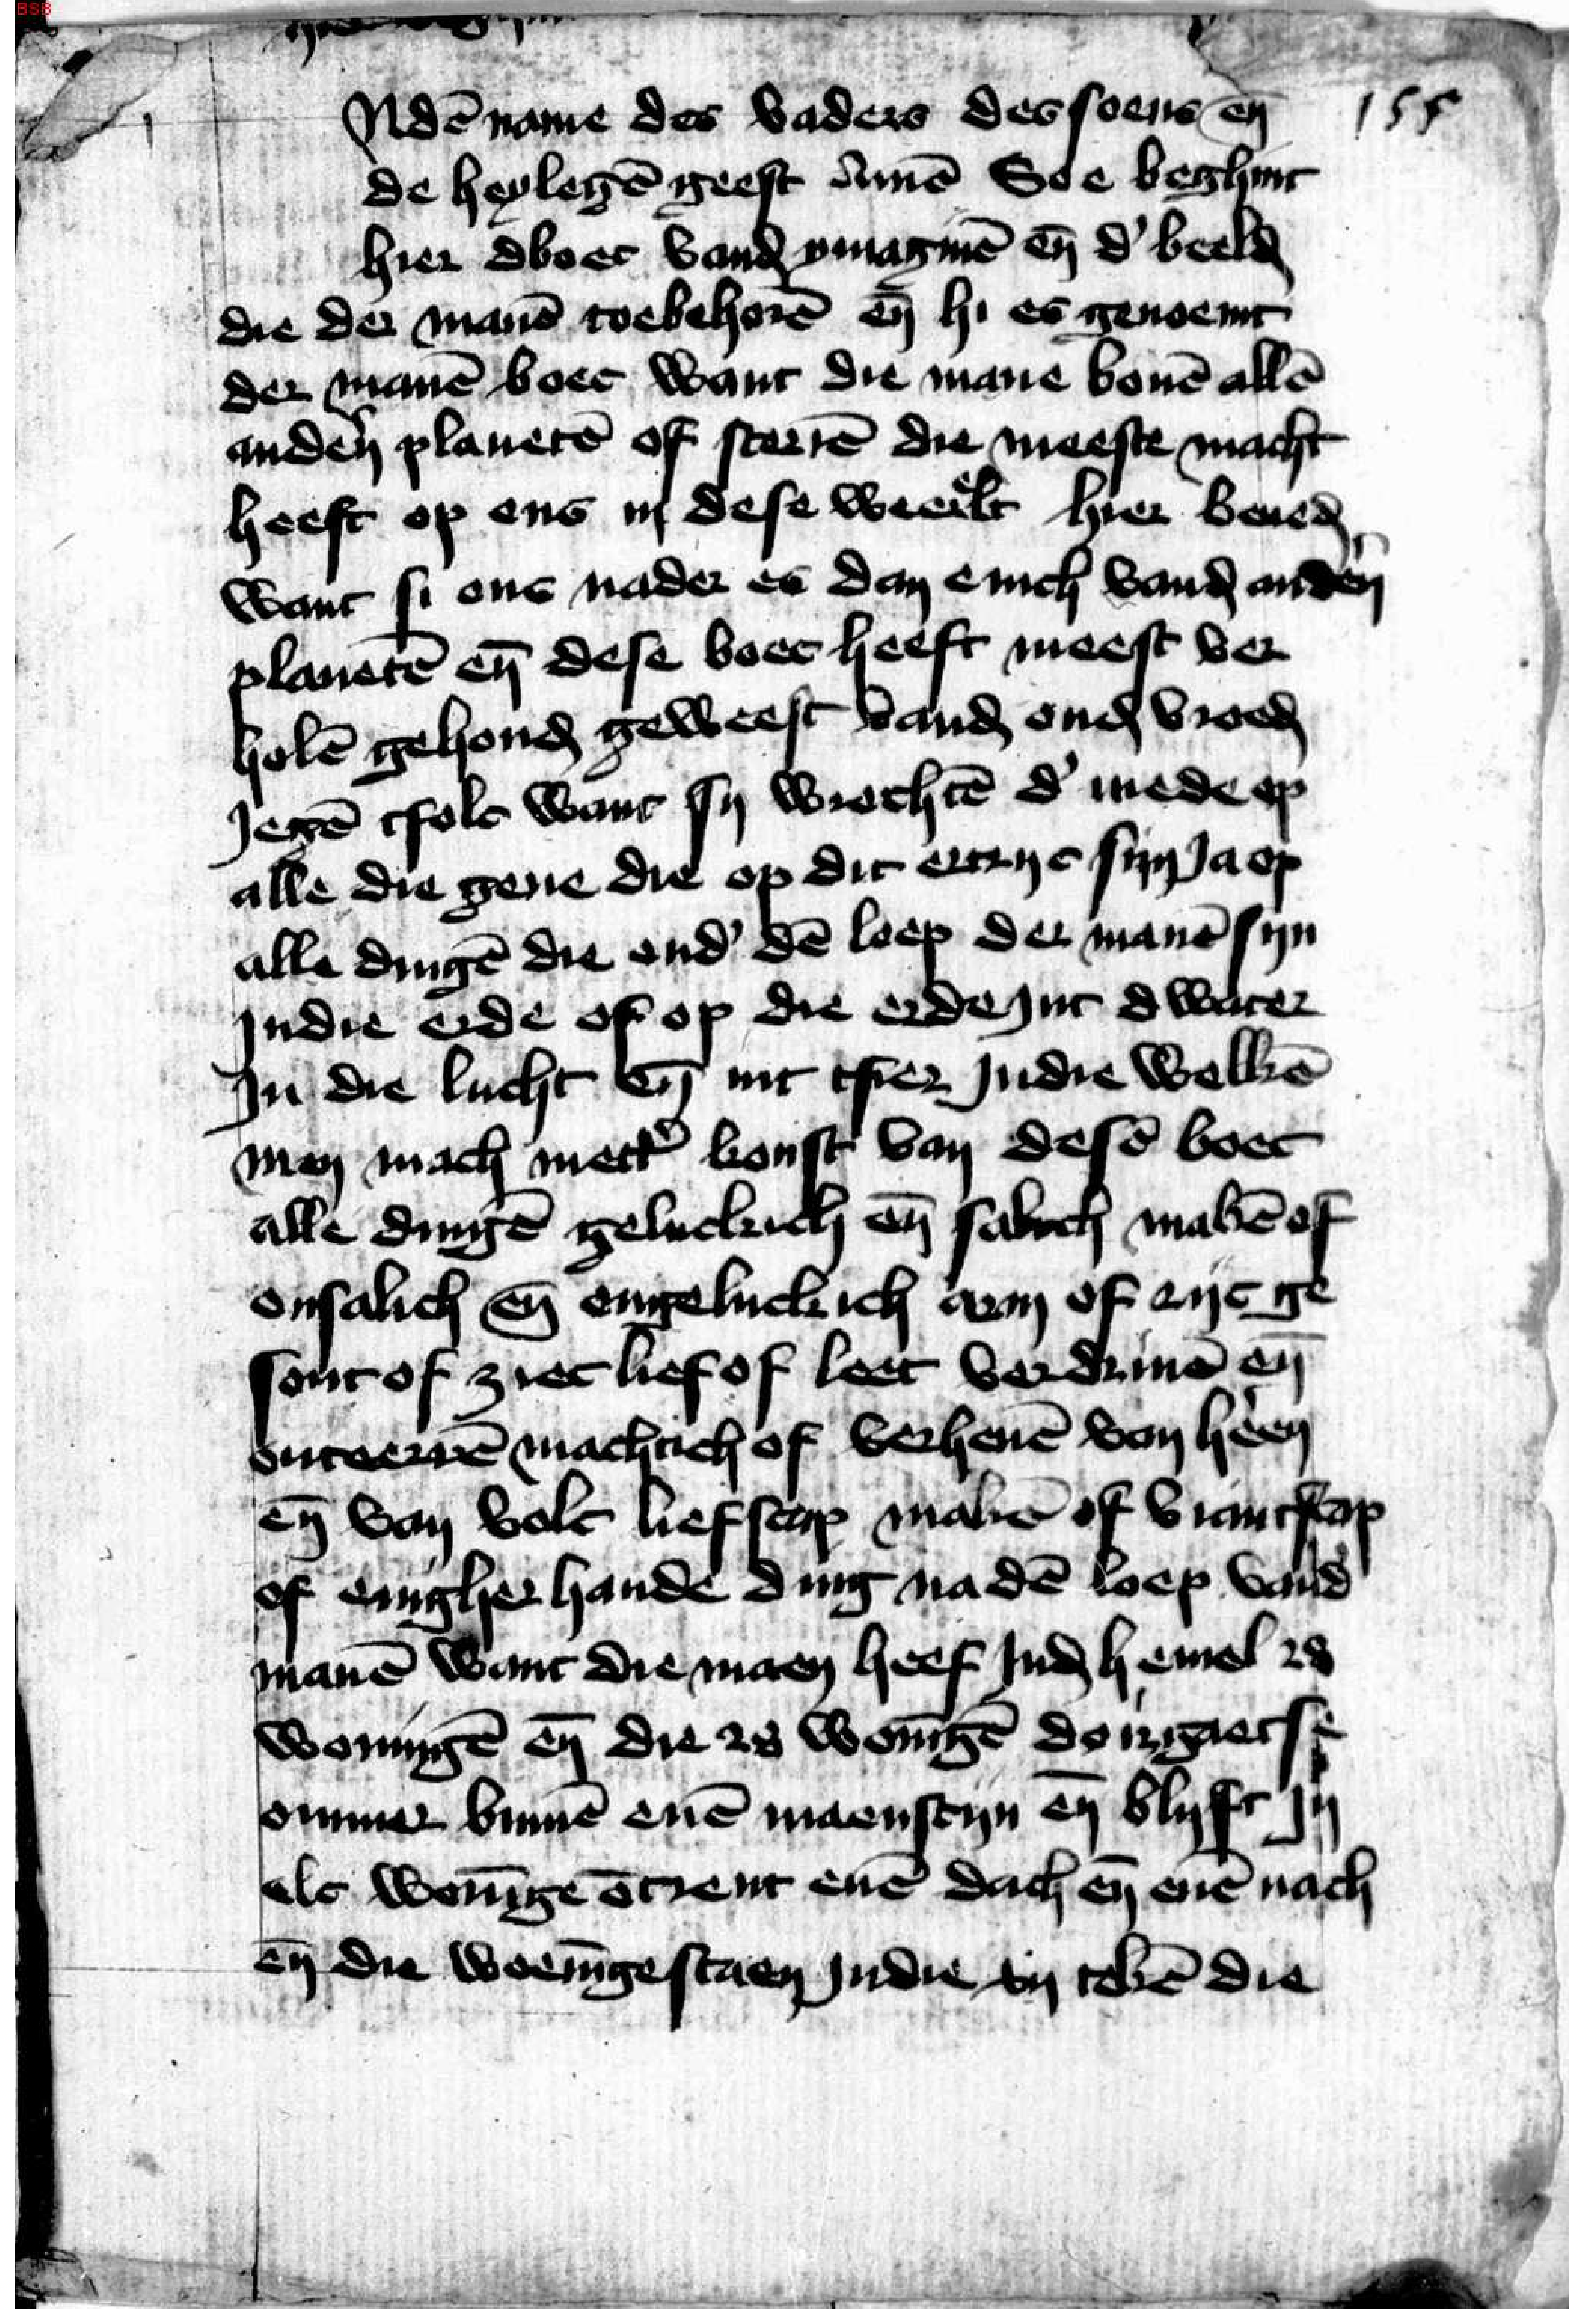 155
Nde̅ name des vaders des soens en̅
de heylege̅ geest Ame̅ Soe beghint
hier dboec vand ymagine̅ en̅ d' beeld
die der mane̅ toebehore̅ en̅ hi es genoemt
der mane̅ boec want die mane boue̅ alle̅
anden planete̅ of sterre̅ die meeste macht
heeft op ons in dese weerelt hier bened
want si ons nader es dan enich vand anden
planete̅ en̅ dese boec heeft meest ver
hole̅ gehoud geweest vand oud vroed
Jege̅ tfolc want sy wrochte̅ d' mede op
alle die gene die op dit ertryc sijn Ja op
alle dinge̅ die ond' de̅ loep der mane̅ sijn
Jndie erde of op die erde Jnt dwater
Jn die lucht en̅ int tfier Jndie wolke̅
men mach mett' konst van dese̅ boec
alle dinge̅ geluckich en̅ salich make̅ of
onsalich en̅ ongeluckich arm of rijc ge
sont of ziec lief of leet verdriue̅ en̅
onteerre̅ machtich of verheue̅ van heen
en̅ van volc liefscap make̅ of viantscap
of enigherhande ding na de̅ loep vand'
mane̅ want die maen heef Jnd hemel 28
woninge̅ en̅ die 28 woni̅ge̅ dorgaet se
ommer binne̅ ene̅ maenscijn en̅ blijft Jn
elc woni̅ge o̅trent ene̅ dach en̅ ene̅ nach
en̅ die woeni̅ge staen Jndie xij teke̅ die